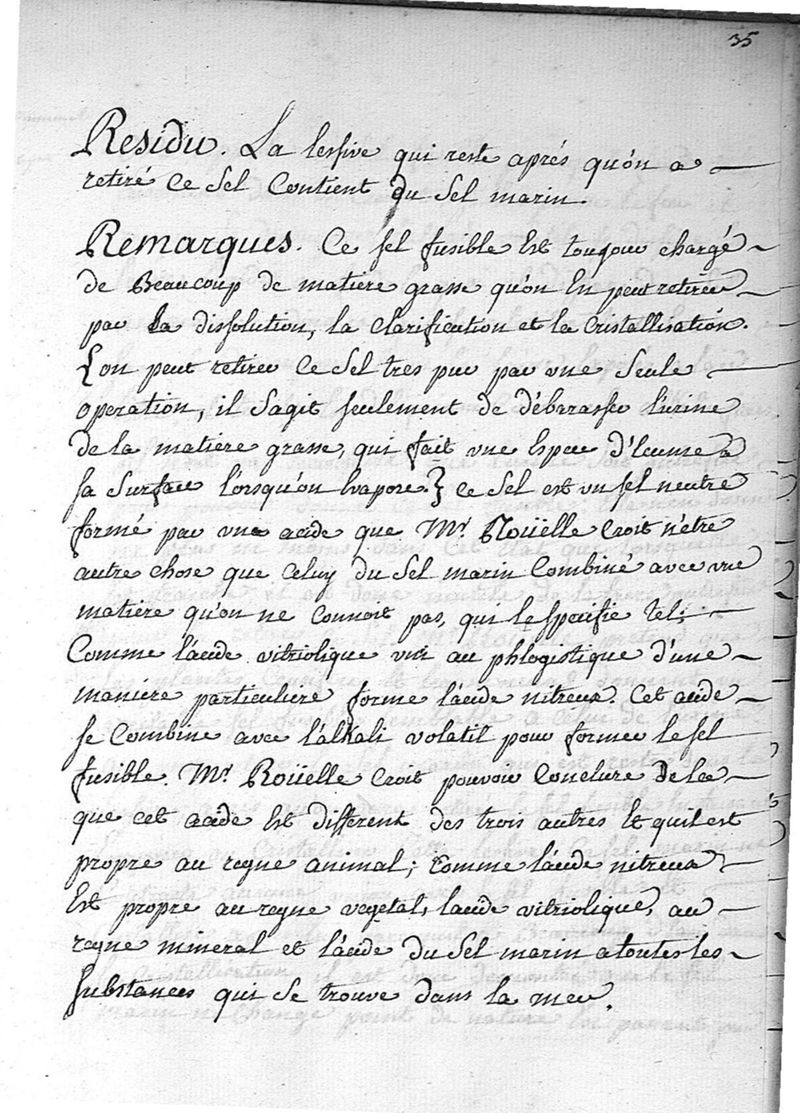 35
Residu. La lessive qui reste aprés qu'on a
retiré Ce Sel Contient du Sel marin.
Remarques. Ce sel fusible Est toujour chargé
de Beaucoup de matiere grasse qu'on En peut retirer
par la dissolution, la clarification et la cristallisation.
L'on peut retirer Ce Sel tres pur par une Seule
operation, il s'agit seulement de débarasser l'urine
de la matiere grasse, qui fait une Espece d'Ecume a
sa Surface lorsqu'on Evapore. Ce Sel est un sel neutre
formé par une acide que Mr. Roüelle Croit n'être
autre chose que Celuy du Sel marin Combiné avec une
matiere qu'on ne Connoit pas, qui le specifie tel;
Comme l'acide vitriolique uni au phlogistique d'une
maniere particuliere forme l'acide nitreux. Cet acide
se Combine avec l'alkali volatil pour former le sel
fusible. Mr. Roüelle Croit pouvoir Conclure de la
que cet acide Est different des trois autres Et qu'il est
propre au regne animal; Comme l'acide nitreux
Est propre au regne vegetal, l'acide vitriolique, au
regne mineral et l'acide du Sel marin a toutes les
Substances qui se trouve dans la mer.